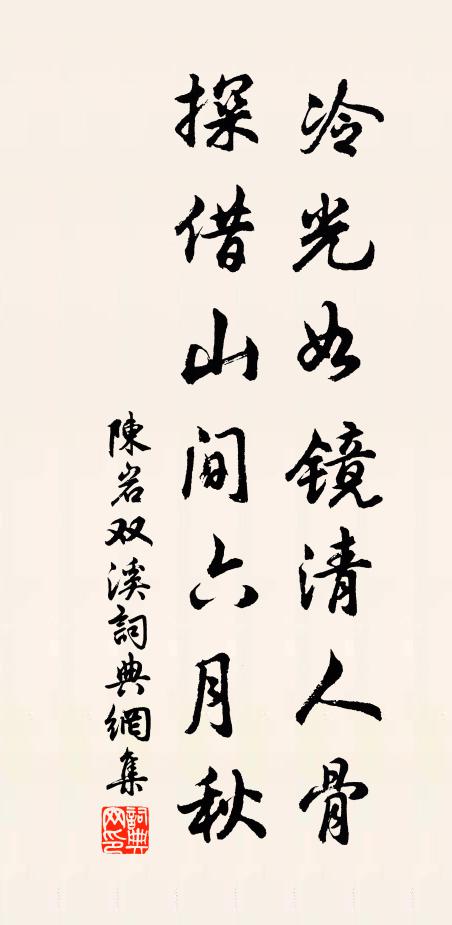 冷光如镜清人骨
探借山间六月秋
陳岩双溪詞典網集
詞典网印